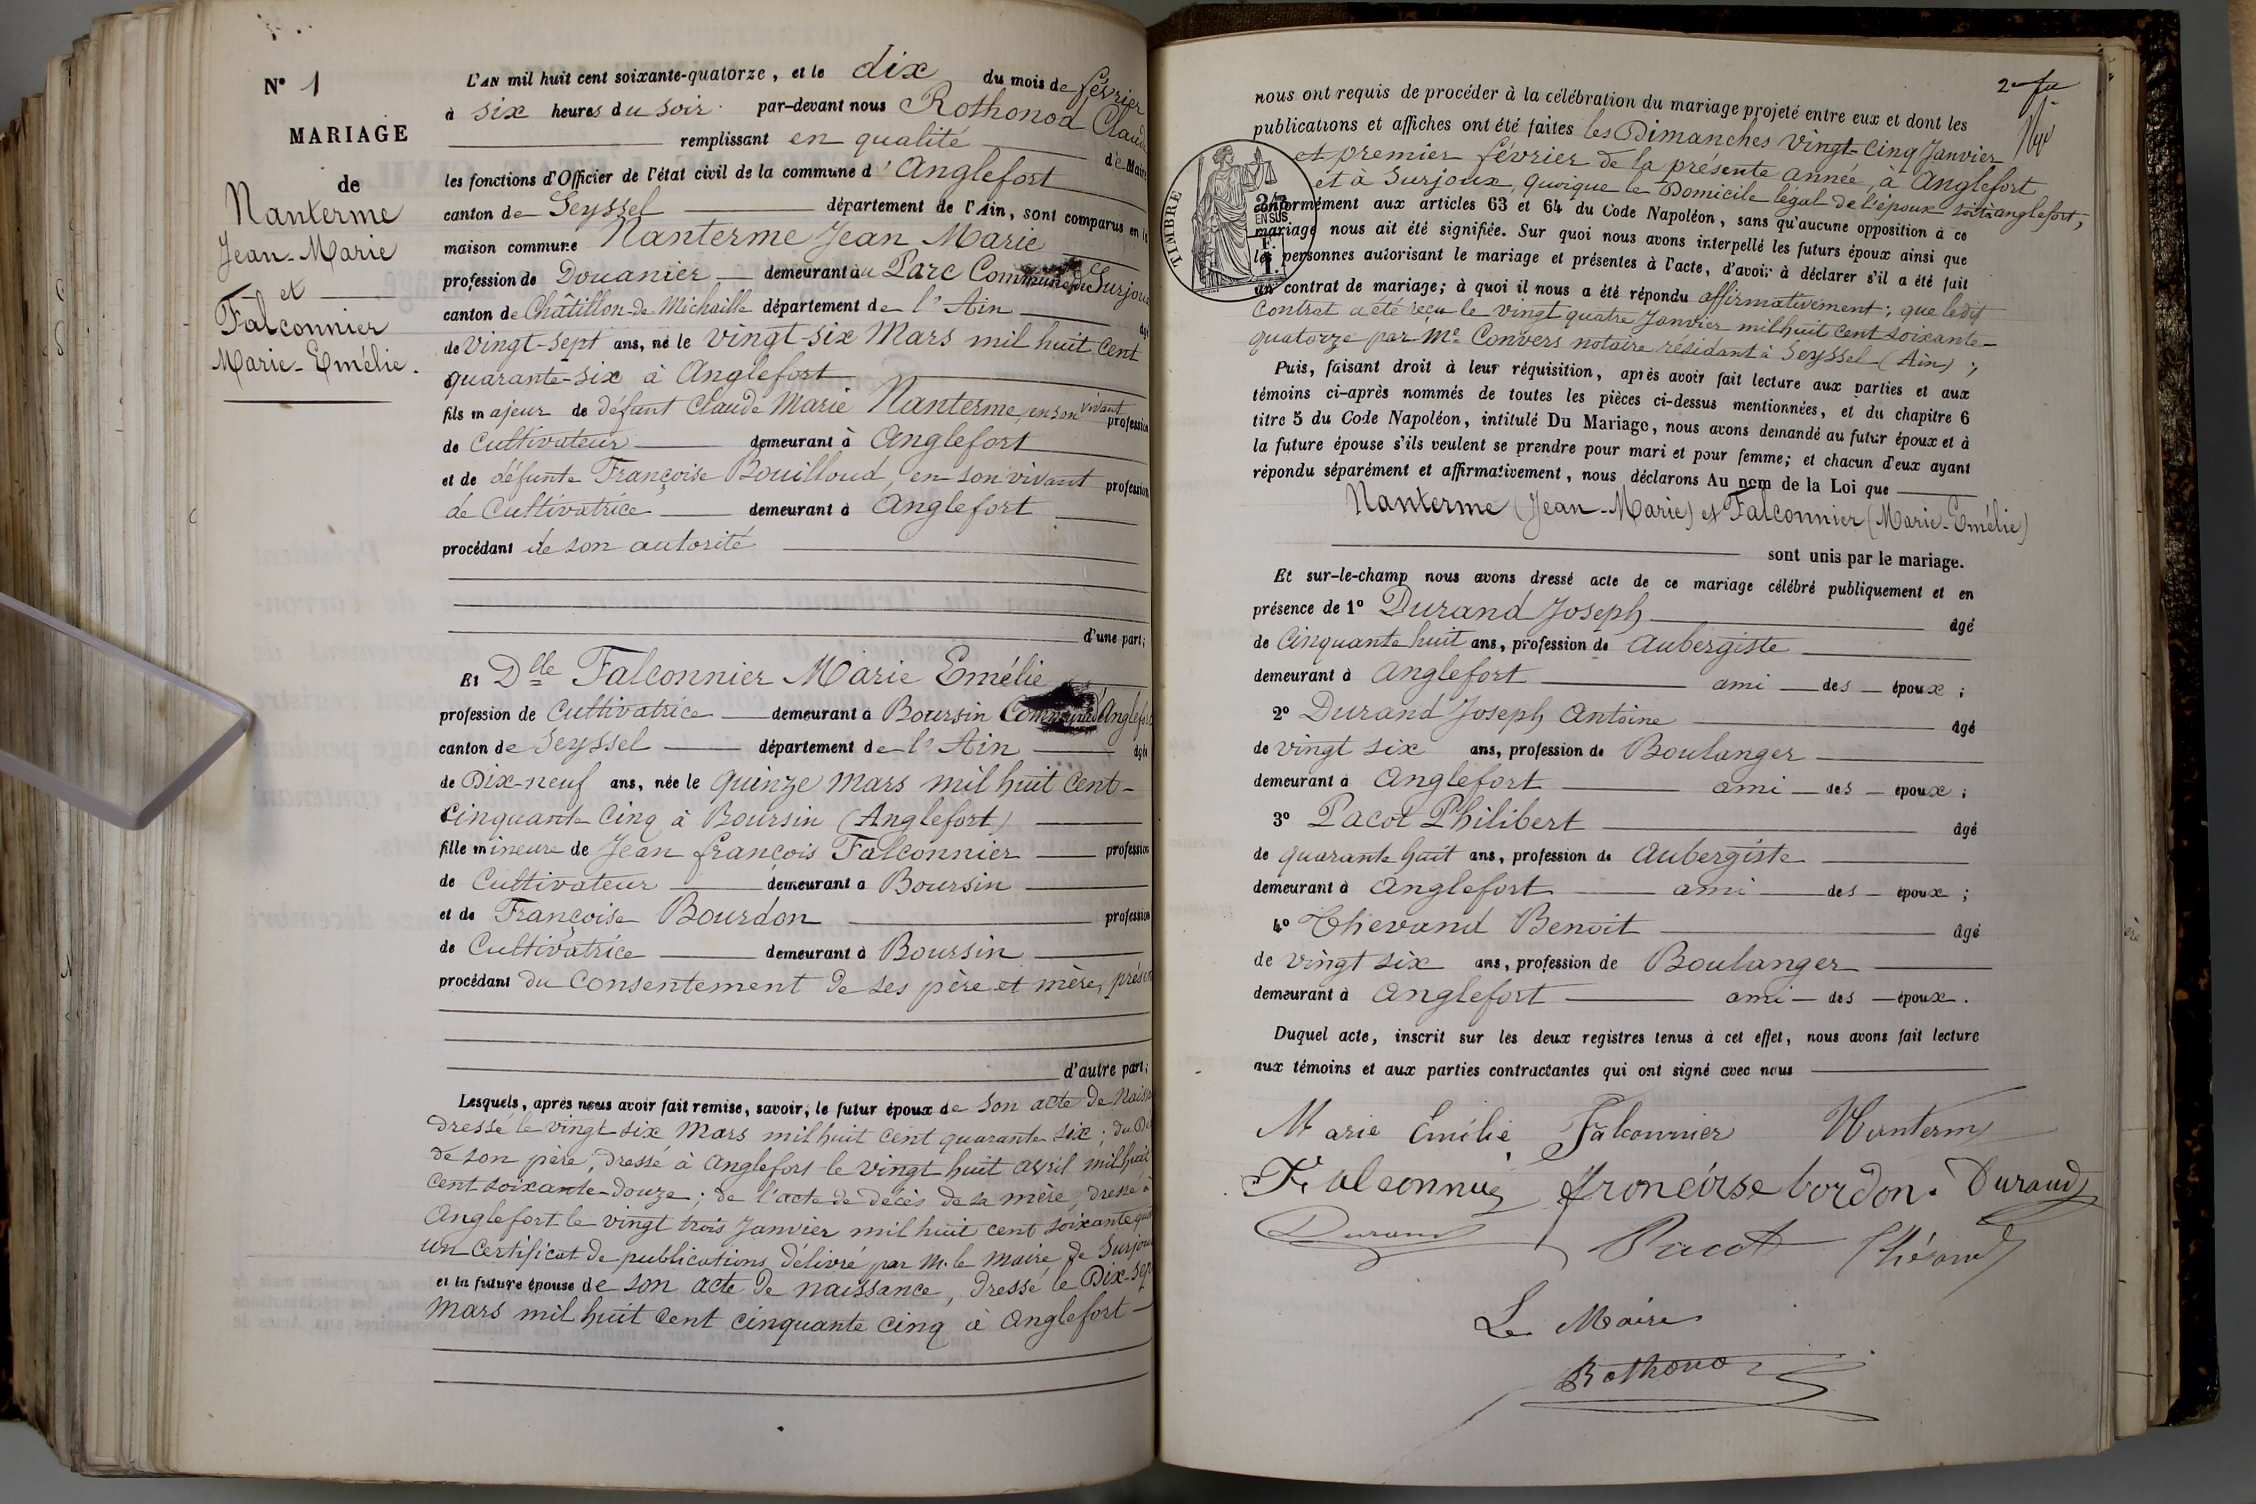 N° 1
MARIAGE
de
Nanterme
Jean-Marie
et
Falconnier
Marie-Emélie.
L'AN mil huit cent soixante-quatorze, et le dix du mois de février
à six heures du soir par-devant nous Rothonod Claude
remplissant en qualité de Maire
les fonctions d'Officier de l'état civil de la commune d'Anglefort
canton de Seyssel département de l'Ain, sont comparus en la
maison commune Nanterme Jean Marie
profession de Douanier demeurant au Parc Commune de Surjoux
canton de Châtillon-de-Michaille département de l'Ain âgé
de vingt-sept ans, né le vingt-six Mars mil huit cent
quarante-six à Anglefort
fils majeur de défunt Claude Marie Nanterme, en son vivant profession
de Cultivateur demeurant à Anglefort
et de défunte Françoise Bouilloud, en son vivant profession
de Cultivatrice demeurant à Anglefort
procédant de son autorité
d'une part;
Et Dlle Falconnier Marie Emélie
profession de Cultivatrice demeurant à Boursin Commune d'Anglefort
canton de Seyssel département de l'Ain âgée
de Dix-neuf ans, née le quinze mars mil huit cent-
cinquante cinq à Boursin (Anglefort)
fille mineure de Jean françois Falconnier profession
de Cultivateur demeurant à Boursin
et de Françoise Bourdon profession
de Cultivatrice demeurant à Boursin
procédant du consentement de ses père et mère, présen
d'autre part;
Lesquels, après nous avoir fait remise, savoir; le futur époux de son acte de Naiss
dressé le vingt six Mars mil huit cent quarante six; du Dé
de son père, dressé à Anglefort le vingt huit avril mil huit
cent soixante-douze; de l'acte de décès de sa mère, dressé à
Anglefort le vingt trois Janvier mil huit cent soixante
un certificat de publications délivré par M. le maire de Surjoux
et la future épouse de son acte de naissance, dressé le Dix-sept
mars mil huit cent cinquante cinq à Anglefort
2e fe
nous ont requis de procéder à la célébration du mariage projeté entre eux et dont les
publications et affiches ont été faites les Dimanches vingt-cinq Janvier
et premier février de la présente année, à Anglefort
et à Surjoux, quoique le Domicile légal de l'époux soit à anglefort;
conformément aux articles 63 et 64 du Code Napoléon, sans qu'aucune opposition à ce
mariage nous ait été signifiée. Sur quoi nous avons interpellé les futurs époux ainsi que
les personnes autorisant le mariage et présentes à l'acte, d'avoir à déclarer s'il a été fait
un contrat de mariage; à quoi il nous a été répondu affirmativement; que ledit
contrat a été reçu le vingt quatre Janvier mil huit cent soixante-
quatorze par Me Convers notaire résidant à Seyssel (Ain);
TIMBRE
2/10
EN SUS
Puis, faisant droit à leur réquisition, après avoir fait lecture aux parties et aux
témoins ci-après nommés de toutes les pièces ci-dessus mentionnées, et du chapitre 6
titre 5 du Code Napoléon, intitulé Du Mariage, nous avons demandé au futur époux et à
la future épouse s'ils veulent se prendre pour mari et pour femme; et chacun d'eux ayant
répondu séparément et affirmativement, nous déclarons Au nom de la Loi que
Nanterme (Jean-Marie) et Falconnier (Marie-Emélie)
sont unis par le mariage.
Et sur-le-champ nous avons dressé acte de ce mariage célébré publiquement et en
présence de 1° Durand Joseph âgé
de Cinquante huit ans, profession de Aubergiste
demeurant à Anglefort ami des époux;
2° Durand Joseph Antoine âgé
de vingt six ans, profession de Boulanger
demeurant à Anglefort ami des époux;
3° Pacot Philibert âgé
de quarante huit ans, profession de Aubergiste
demeurant à Anglefort ami des époux;
4° Thevand Benoit âgé
de vingt six ans, profession de Boulanger
demeurant à Anglefort ami des époux.
Duquel acte, inscrit sur les deux registres tenus à cet effet, nous avons fait lecture
aux témoins et aux parties contractantes qui ont signé avec nous
Marie Emélie Falconnier Nanterme
Falconnier françoise bordon. Durand
Durand Pacot
Le Maire
Rothonod